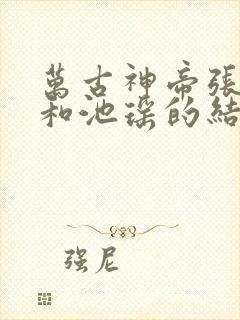 萬古神帝張
和池瑤的結
强尼